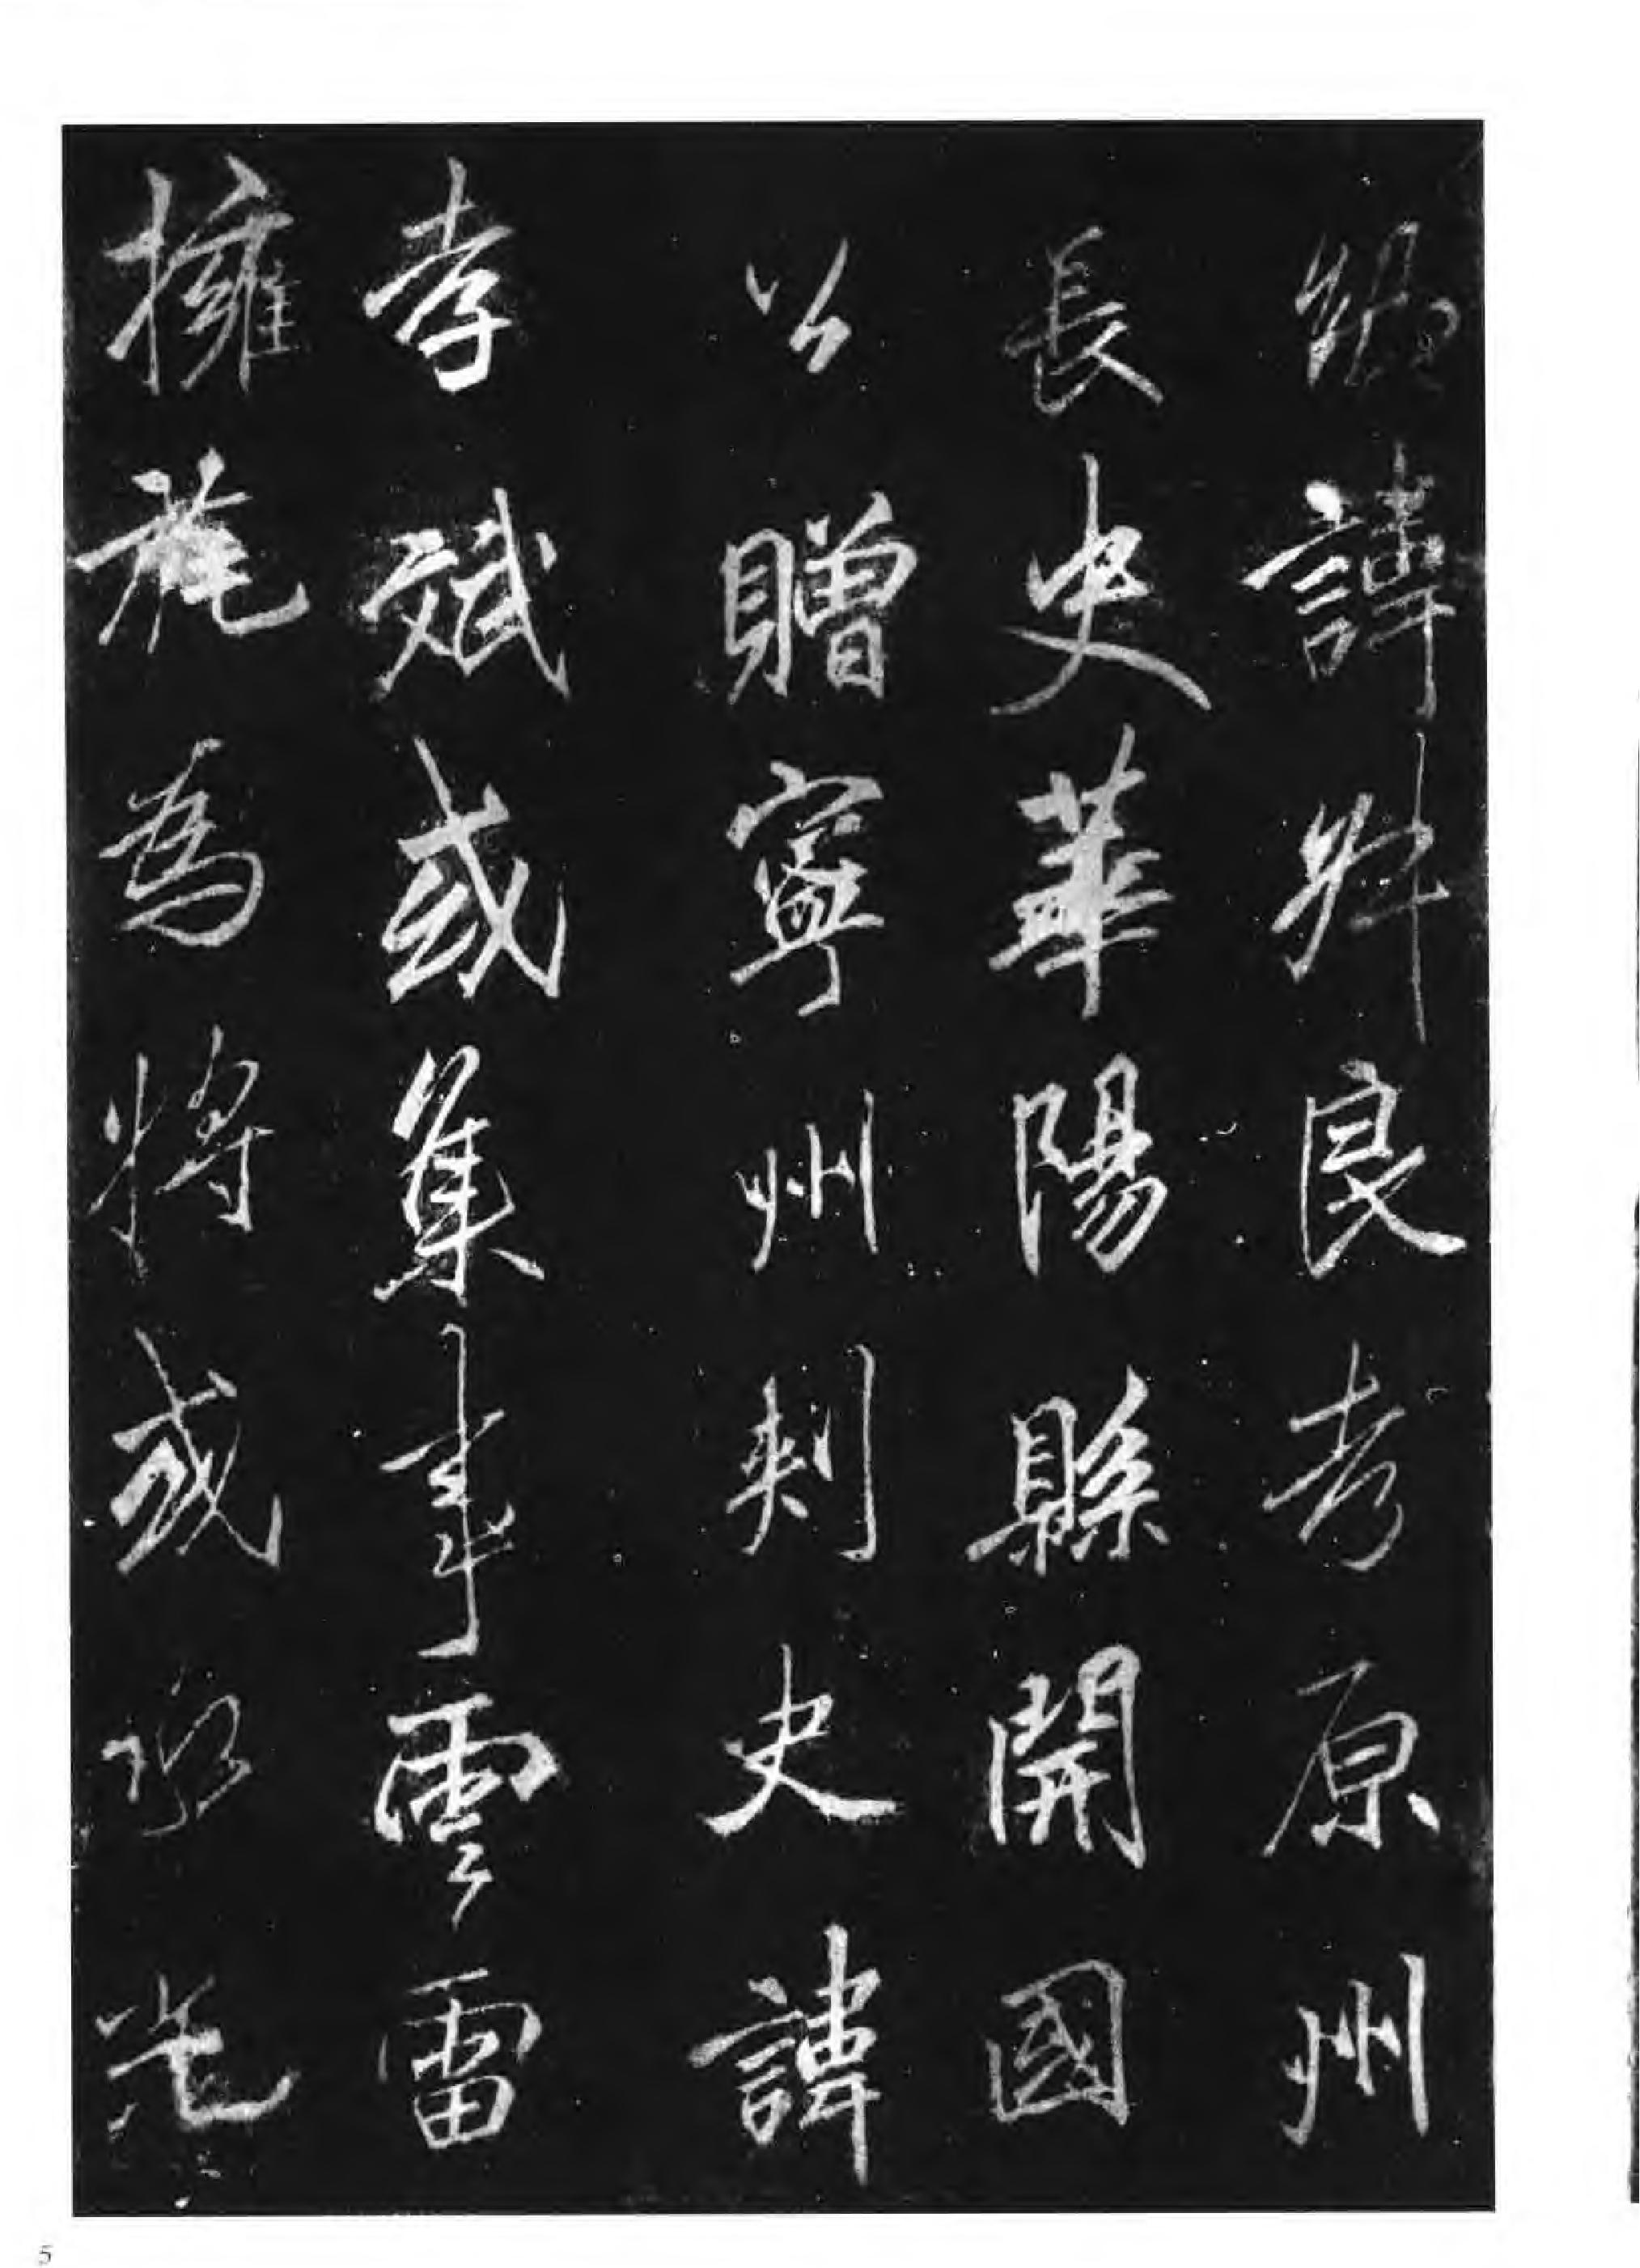 諱叔良考原州
長史華陽縣開國
公贈寧州刺史諱
孝斌或集事雲雷
擁旄為將或承光
5